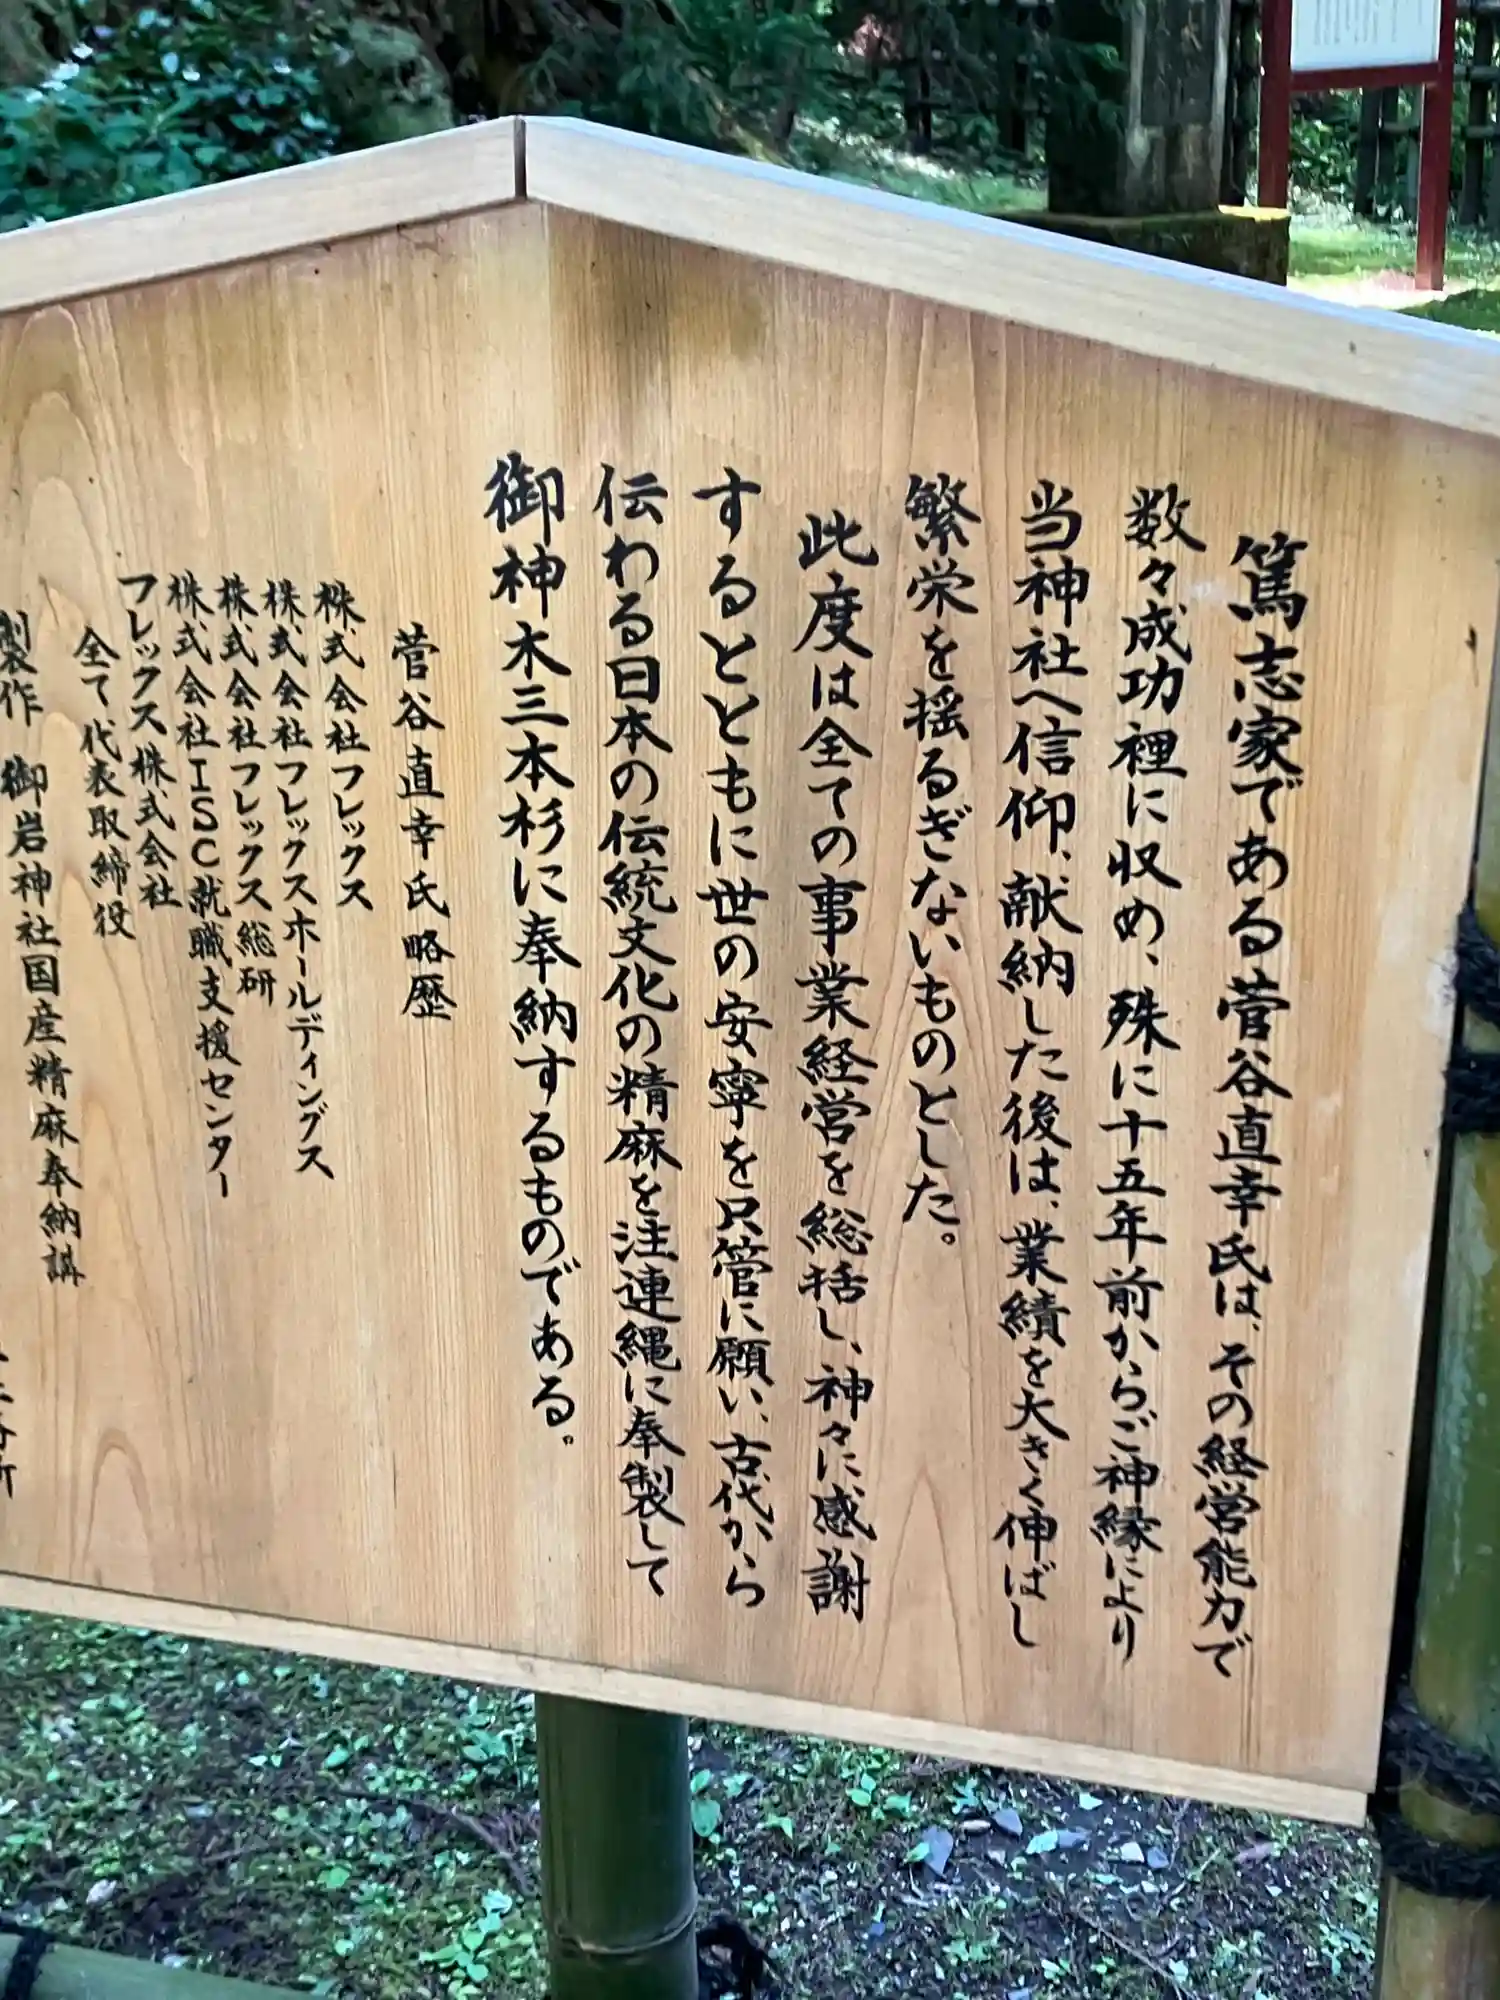 篤志家である菅谷直幸氏は、その経営能力で
数々成功裡に収め、殊に十五年前からご神縁により
当神社へ信仰、献納した後は、業績を大きく伸ばし
繁栄を揺るぎないものとした。
此度は全ての事業経営を総括し、神々に感謝
するとともに世の安寧を只管に願い、古代から
伝わる日本の伝統文化の精麻を注連縄に奉製して
御神木三本杉に奉納するものである。
菅谷直幸氏略歴
株式会社フレックス
株式会社フレックスホールディングス
株式会社フレックス総研
株式会社ISC就職支援センター
フレックス株式会社
全て代表取締役
製作 御岩神社国産精麻奉納講